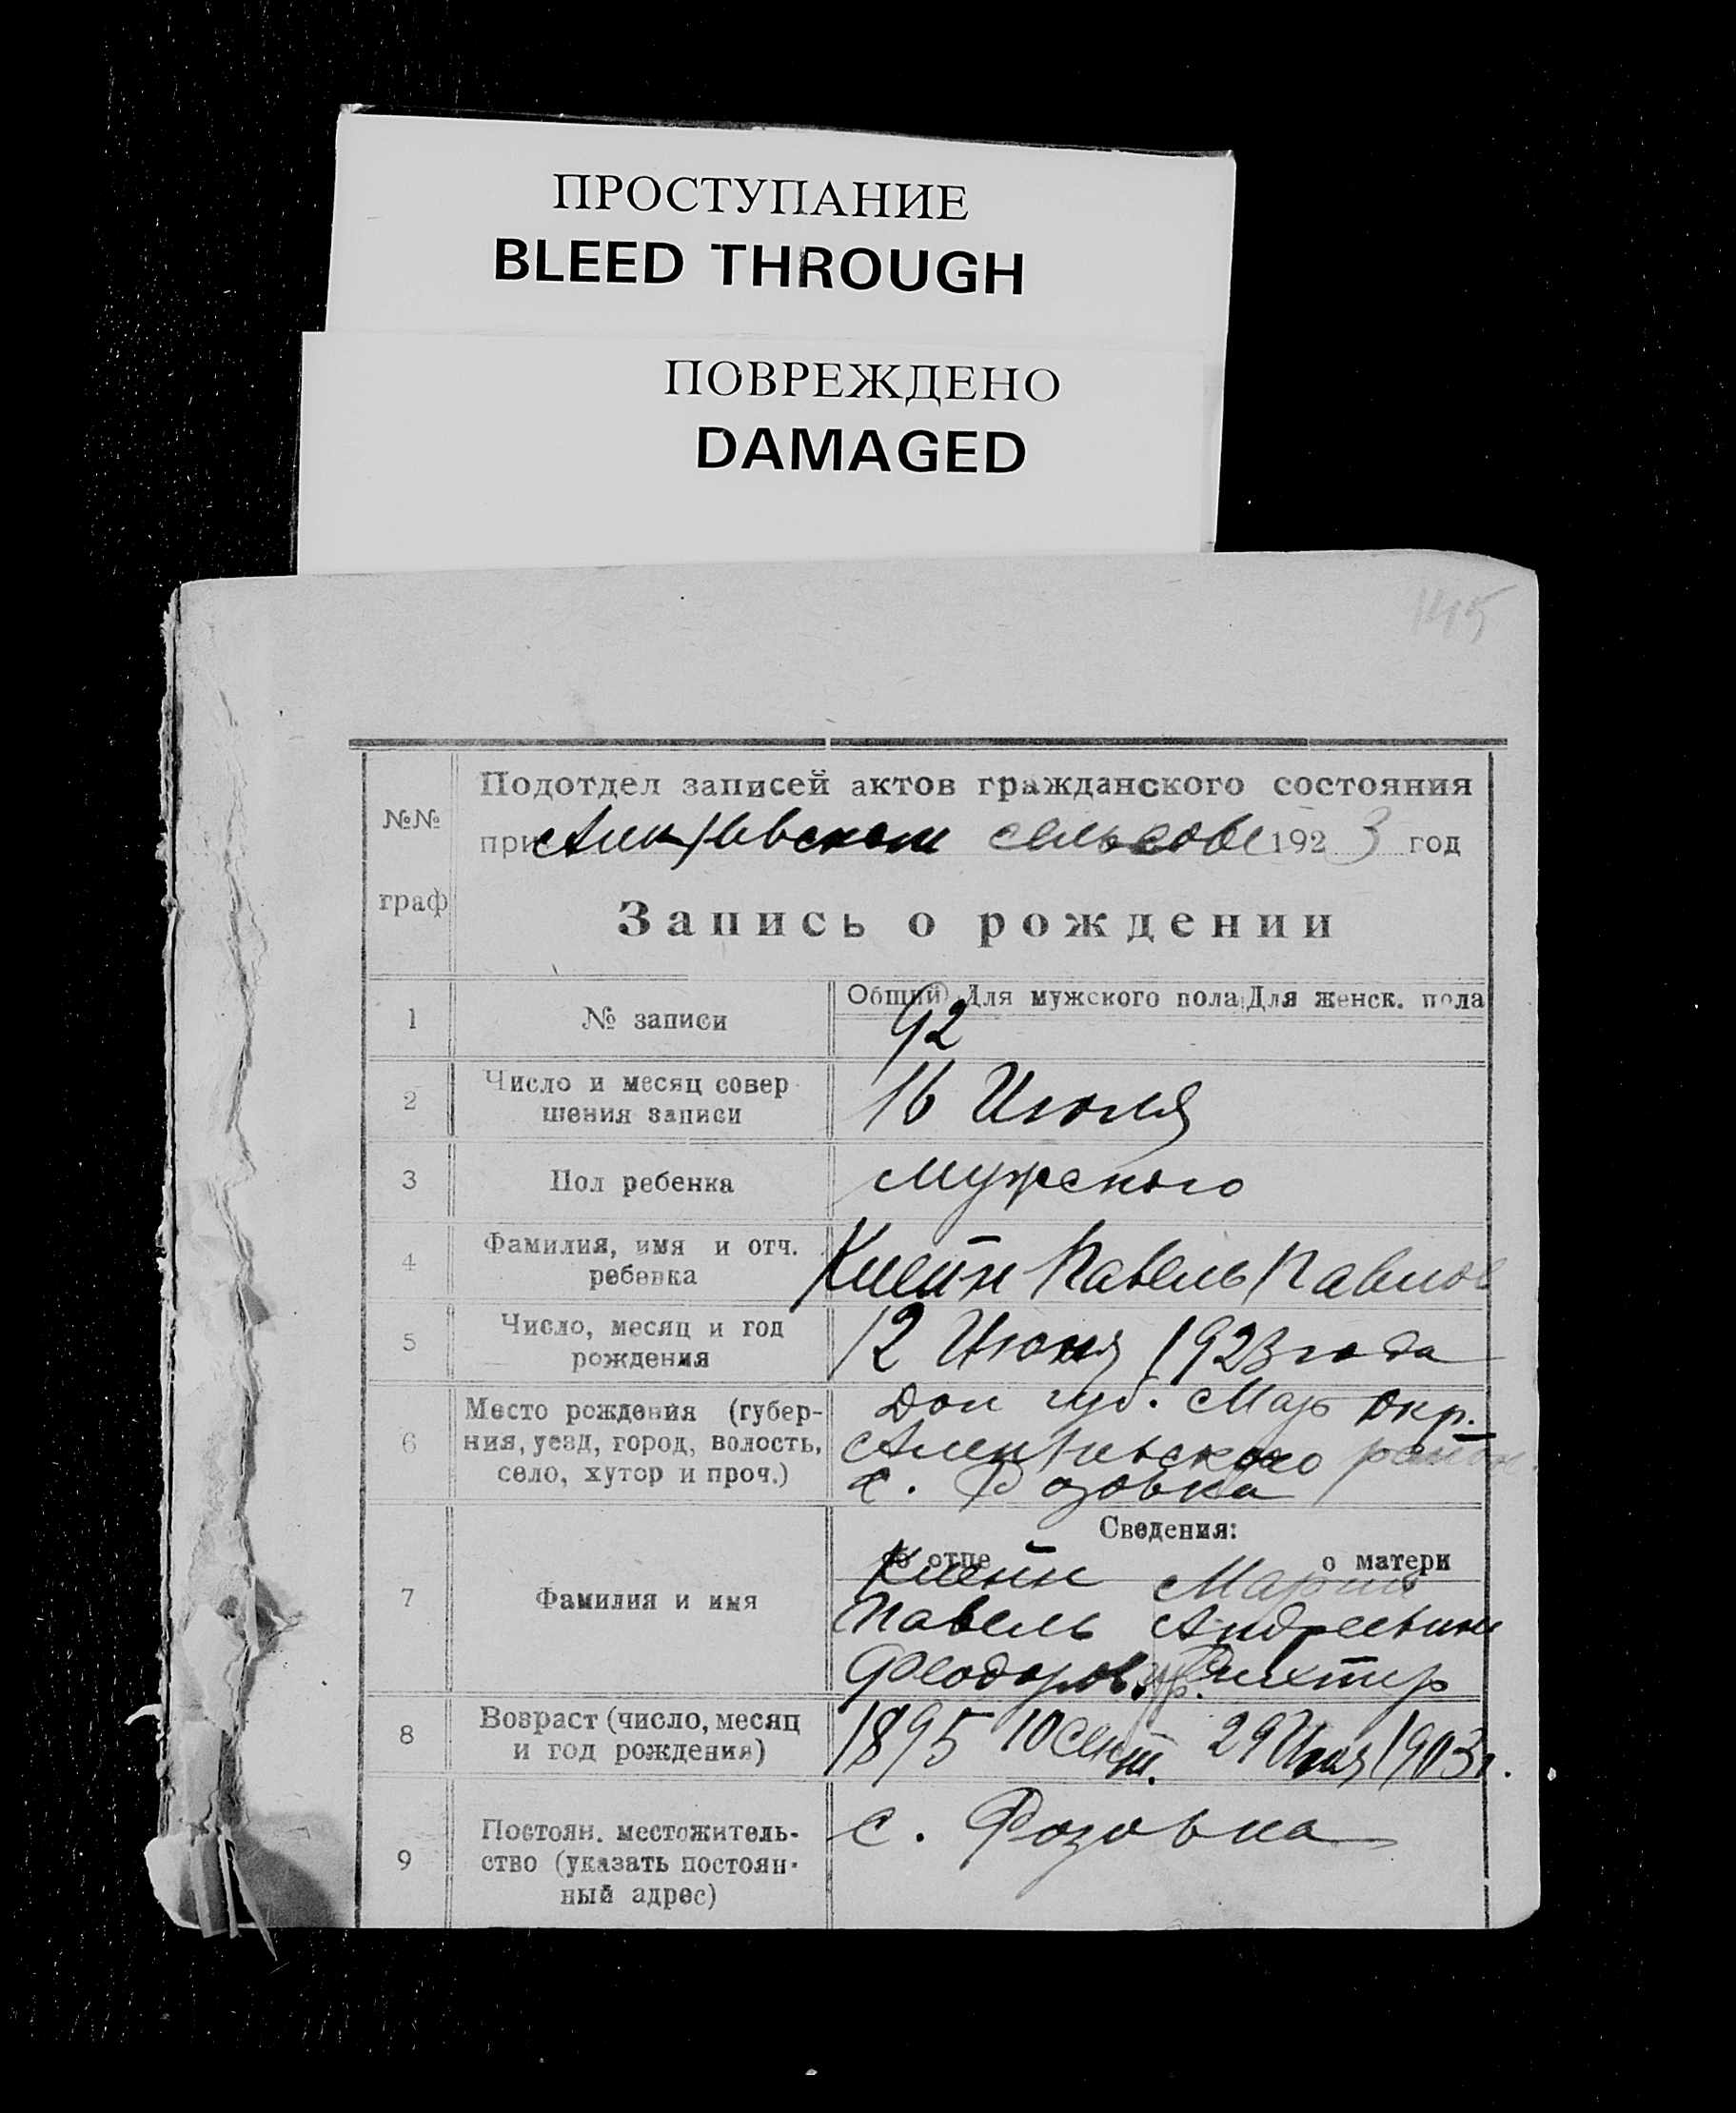 ПРОСТУПАНИЕ
BLEED THROUGH
ПОВРЕЖДЕНО
DAMAGED
145
№№
граф
Подотдел записей актов гражданского состояния
при сельсове 1923 год
Запись о рождении
1 № записи Общий Для мужского пола Для женск. пола
92
2 Число и месяц совер
шения записи
16 Июля
3 Пол ребенка мужского
4 Фамилия, имя и отч.
ребенка
Клейн Павель Павлов
5 Число, месяц и год
рождения
12 1923 года
6 Место рождения (губер-
ния, уезд, город, волость,
село, хутор и проч.)
Дон губ. Мар окр.
район
с. Розовка
Сведения:
об отце о матери
7 Фамилия и имя
Клейн Мария
Павель Андреевна
Феодоров. ур. Рихтер
8 Возраст (число, месяц
и год рождения)
1895 10 сент. 29 1903 г.
9 Постоян. местожитель-
ство (указать постоян-
ный адрес)
с. Розовка